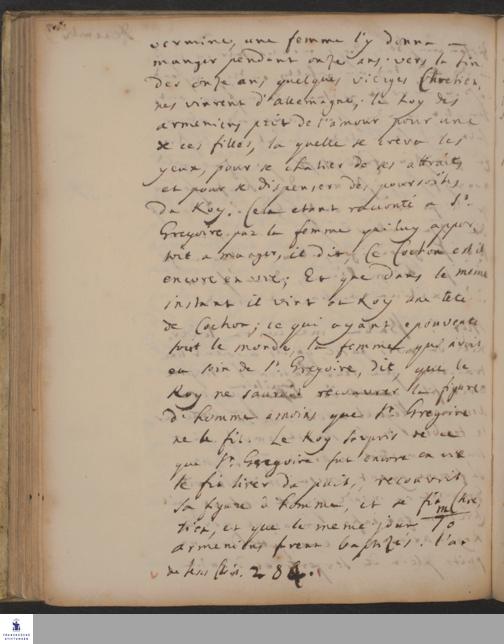 vermine, une femme l'y donna a
manger pendant onze ans. vers la fin
des onze ans quelques vierges Chretien
nes vinrent d'allemagne, le Roy des
armeniens prit de l'amour pour une
de ces filles, la quelle se creva les
yeux, pour se chatier de ses attraits
et pour se dispenser des poursuites
du Roy. Cela etant raconté a St.
Gregoire par la femme qui luy appor
toit a manger, il dit, Ce Cochon est il
encore en vie; Et que dans le meme
instant il vint au Roy une tete
de Cochon; ce qui ayant epouventé
tout le monde, la femme qui avoit
eu soin de St Gregoire, dit, que le
Roy ne sauroit recouvrer la figure
d'homme amoins que St. Gregoire
ne le fit. Le Roy surpris de ce
que St. Gregoire fut encore en vie
le fit tirer du puit, recouvrit
sa figure d'homme, et se fit Chre
tien, et que le meme jour 10 m
armeniens furent baptizés. l'an
de Jesus Christ. 284.
FRANCKESCHE
STIFTUNGEN